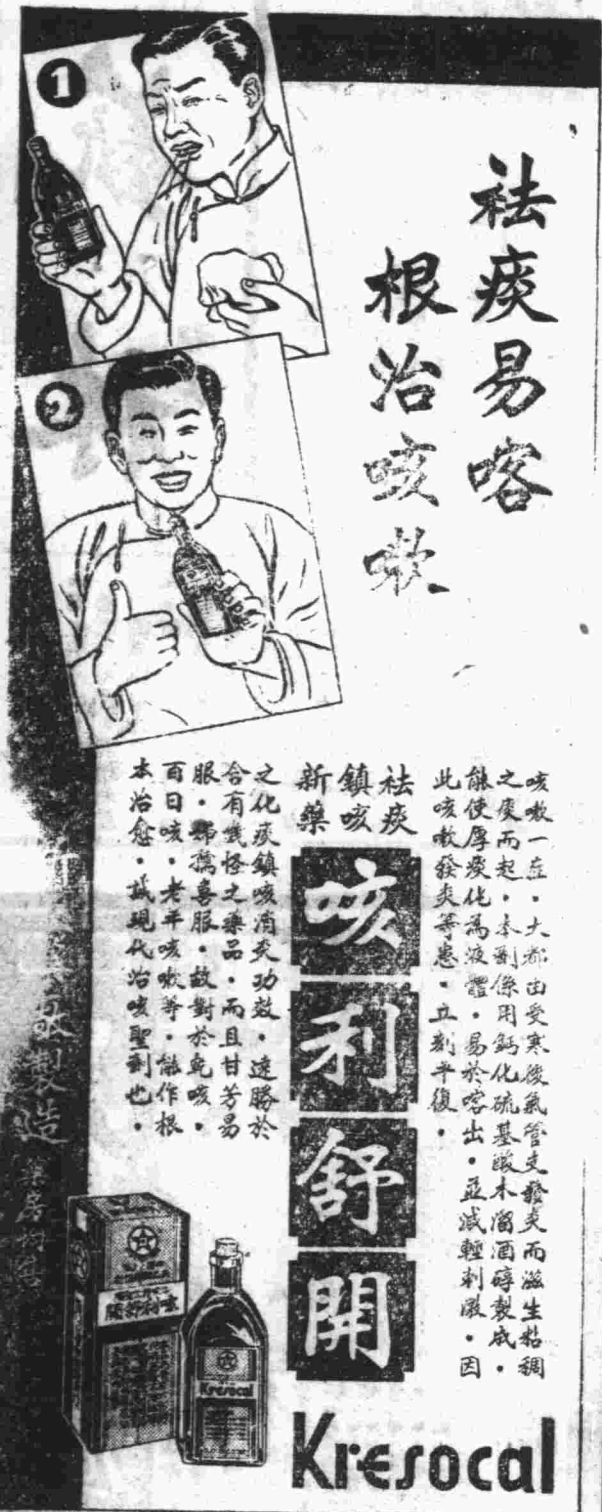 祛痰易咯
根治咳嗽
咳嗽一症・大都由受寒後氣管支發炎而滋生粘稠
之痰而起・本劑係用鈣化硫基酸木溜酒醇製成・
能使厚痰化為液體・易於咯出・並減輕刺激・因
此咳嗽發炎等患・立刻平復・
祛痰
鎮咳
新藥
咳利舒開
之化痰鎮咳消炎功效・遠勝於
含有幾怪之藥品・而且甘芳易
服・婦孺喜服・故對於乾咳・
百日咳・老年咳嗽等・能作根
本治愈・誠現代治咳聖劑也・
1
2
製造
藥房
咳利舒開
Kresocal
Kresocal